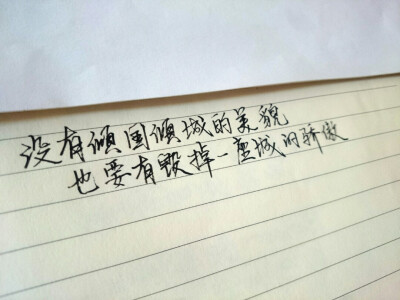 没有倾国倾城的美貌
也要有毁掉一座城的骄傲